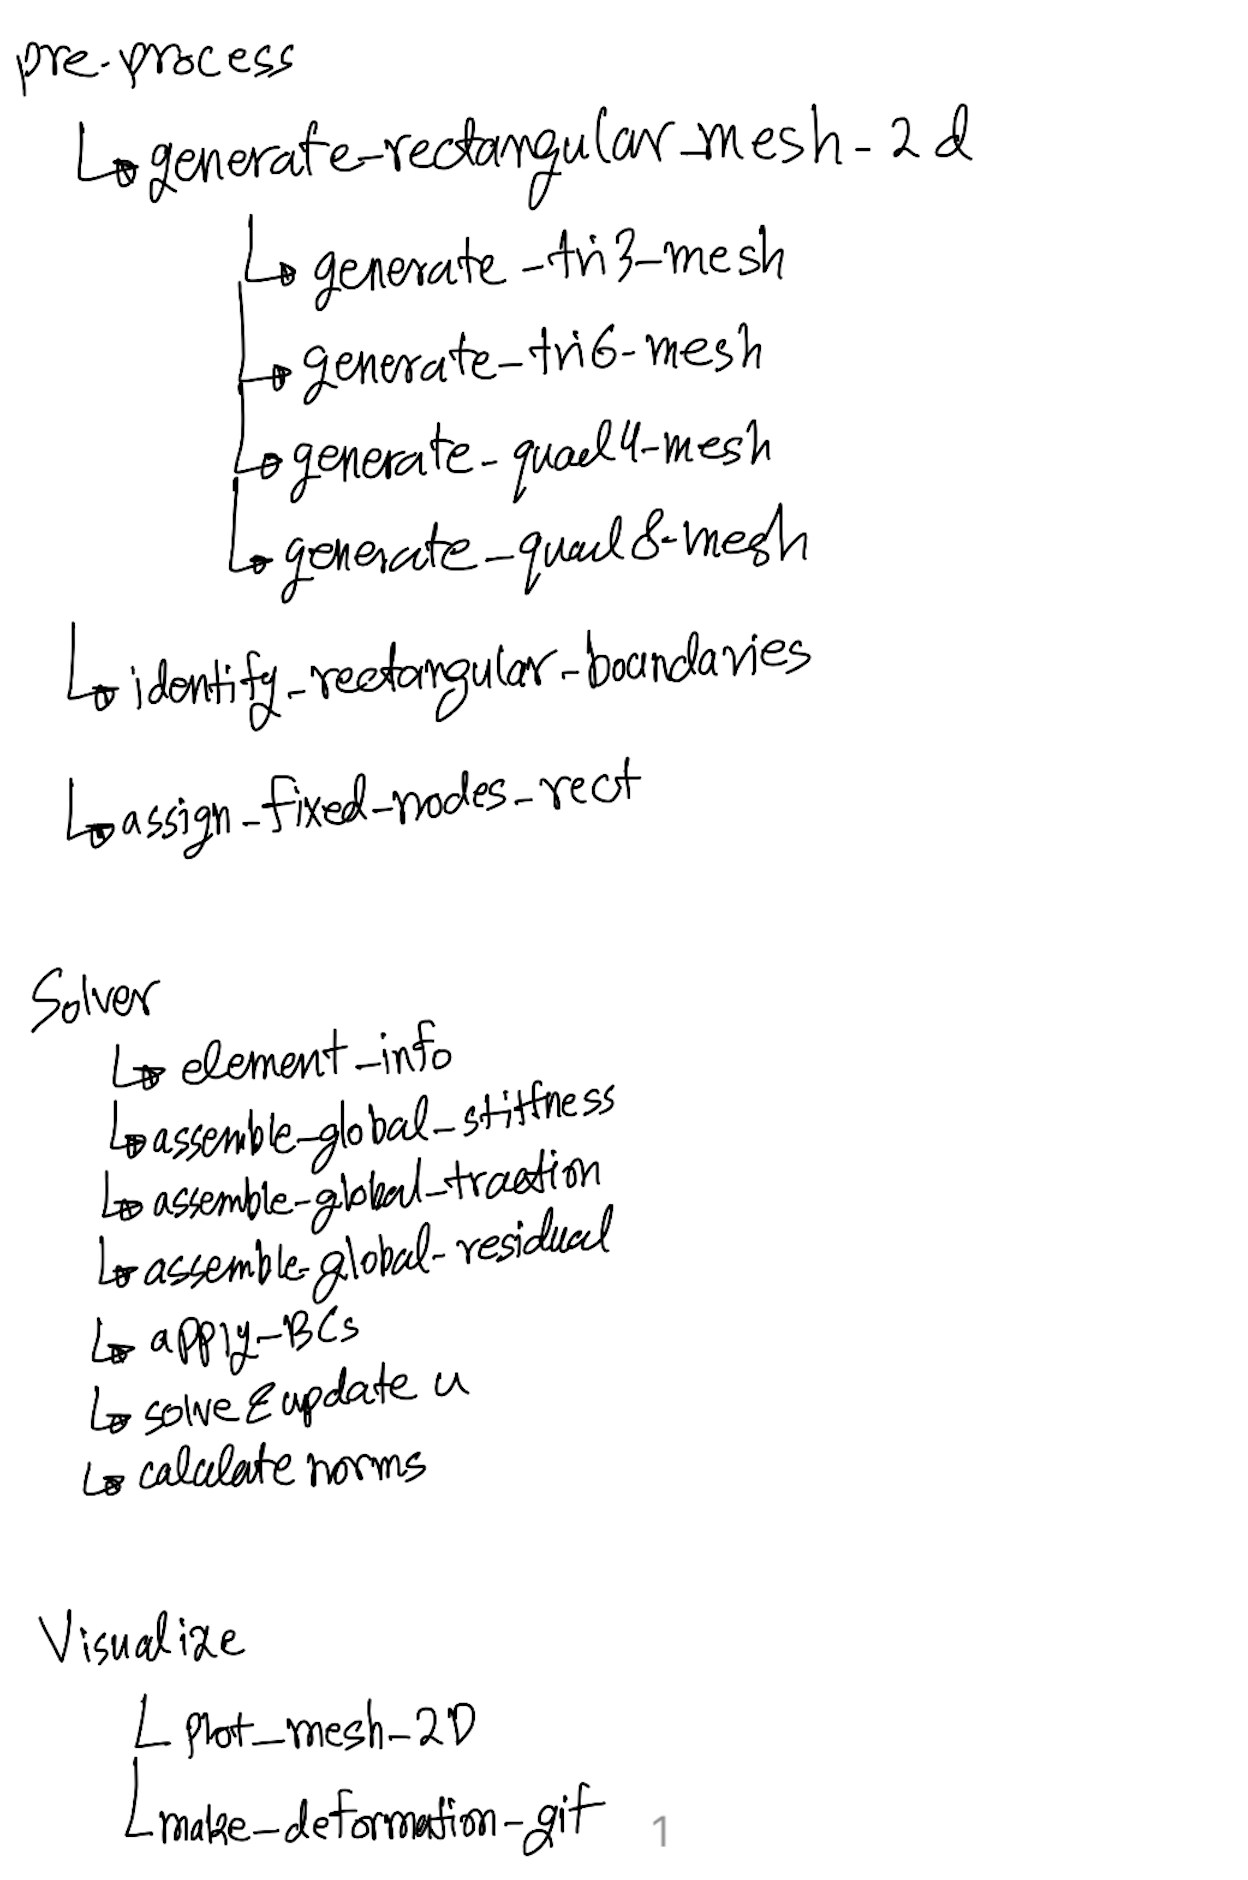 pre-process
generate-rectangular_mesh-2d
generate-tri3-mesh
generate-tri6-mesh
generate-quad4-mesh
generate-quad8-mesh
identify-rectangular-boundaries
assign-fixed-nodes-rect
Solver
element-info
assemble-global-stiffness
assemble-global-traction
assemble-global-residual
apply-BCs
solve & update u
calculate norms
Visualize
plot-mesh-2D
make-deformation-gif
1